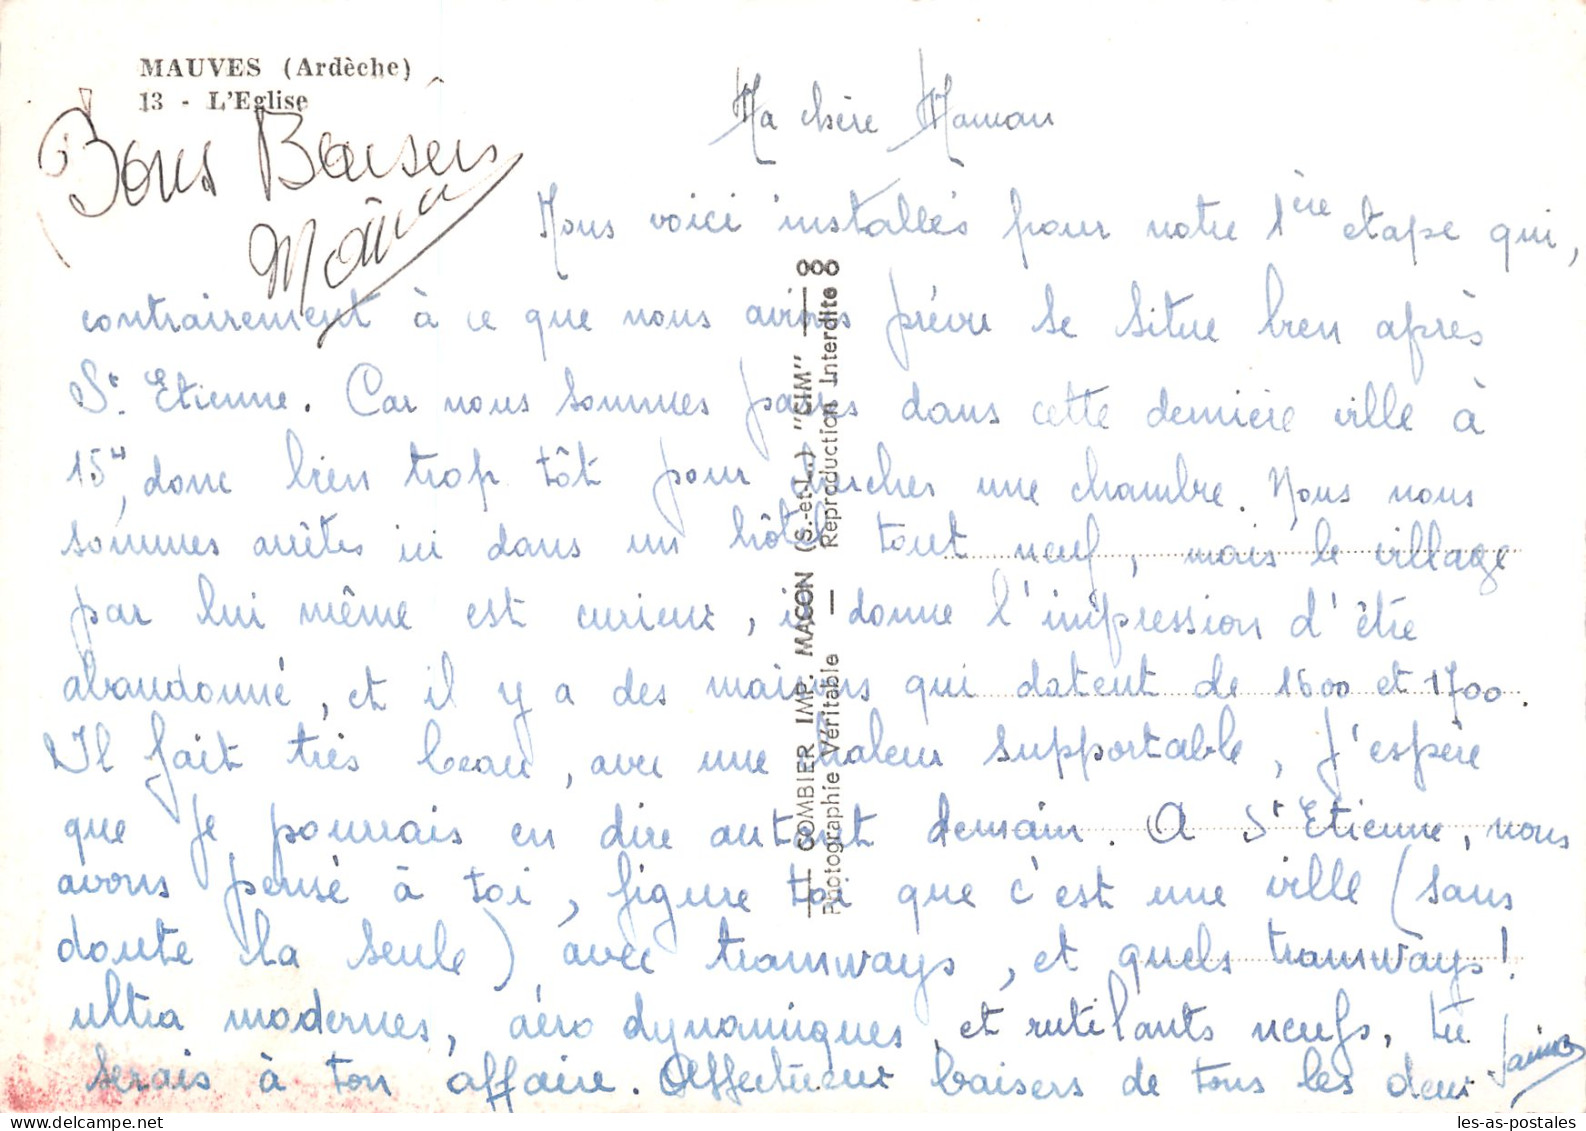 MAUVES (Ardèche)
13 - L'Eglise
Bons Baisers
Ma chère Maman
Nous voici installés pour notre 1ère etape qui,
contrairement à ce que nous avions prévu se situe bien après
St Etienne. Car nous sommes passés dans cette dernière ville à
15H, donc bien trop tôt pour chercher une chambre. Nous nous
sommes arrêtés ici dans un hôtel tout neuf, mais le village
par lui même est curieux, il donne l'impression d'être
abandonné, et il y a des maisons qui datent de 1600 et 1700.
Il fait très beau, avec une chaleur supportable, j'espère
que je pourrais en dire autant demain. A St Etienne, nous
avons pensé à toi, figure toi que c'est une ville (sans
doute la seule) avec tramways, et quels tramways!
ultra modernes, aéro dynamiques, et rutilants neufs, tu
serais à ton affaire. Affectueux baisers de tous les deux
COMBIER IMP. MACON (S.-et-L.) "CIM"
Photographie Véritable — Reproduction Interdite
les-as-postales